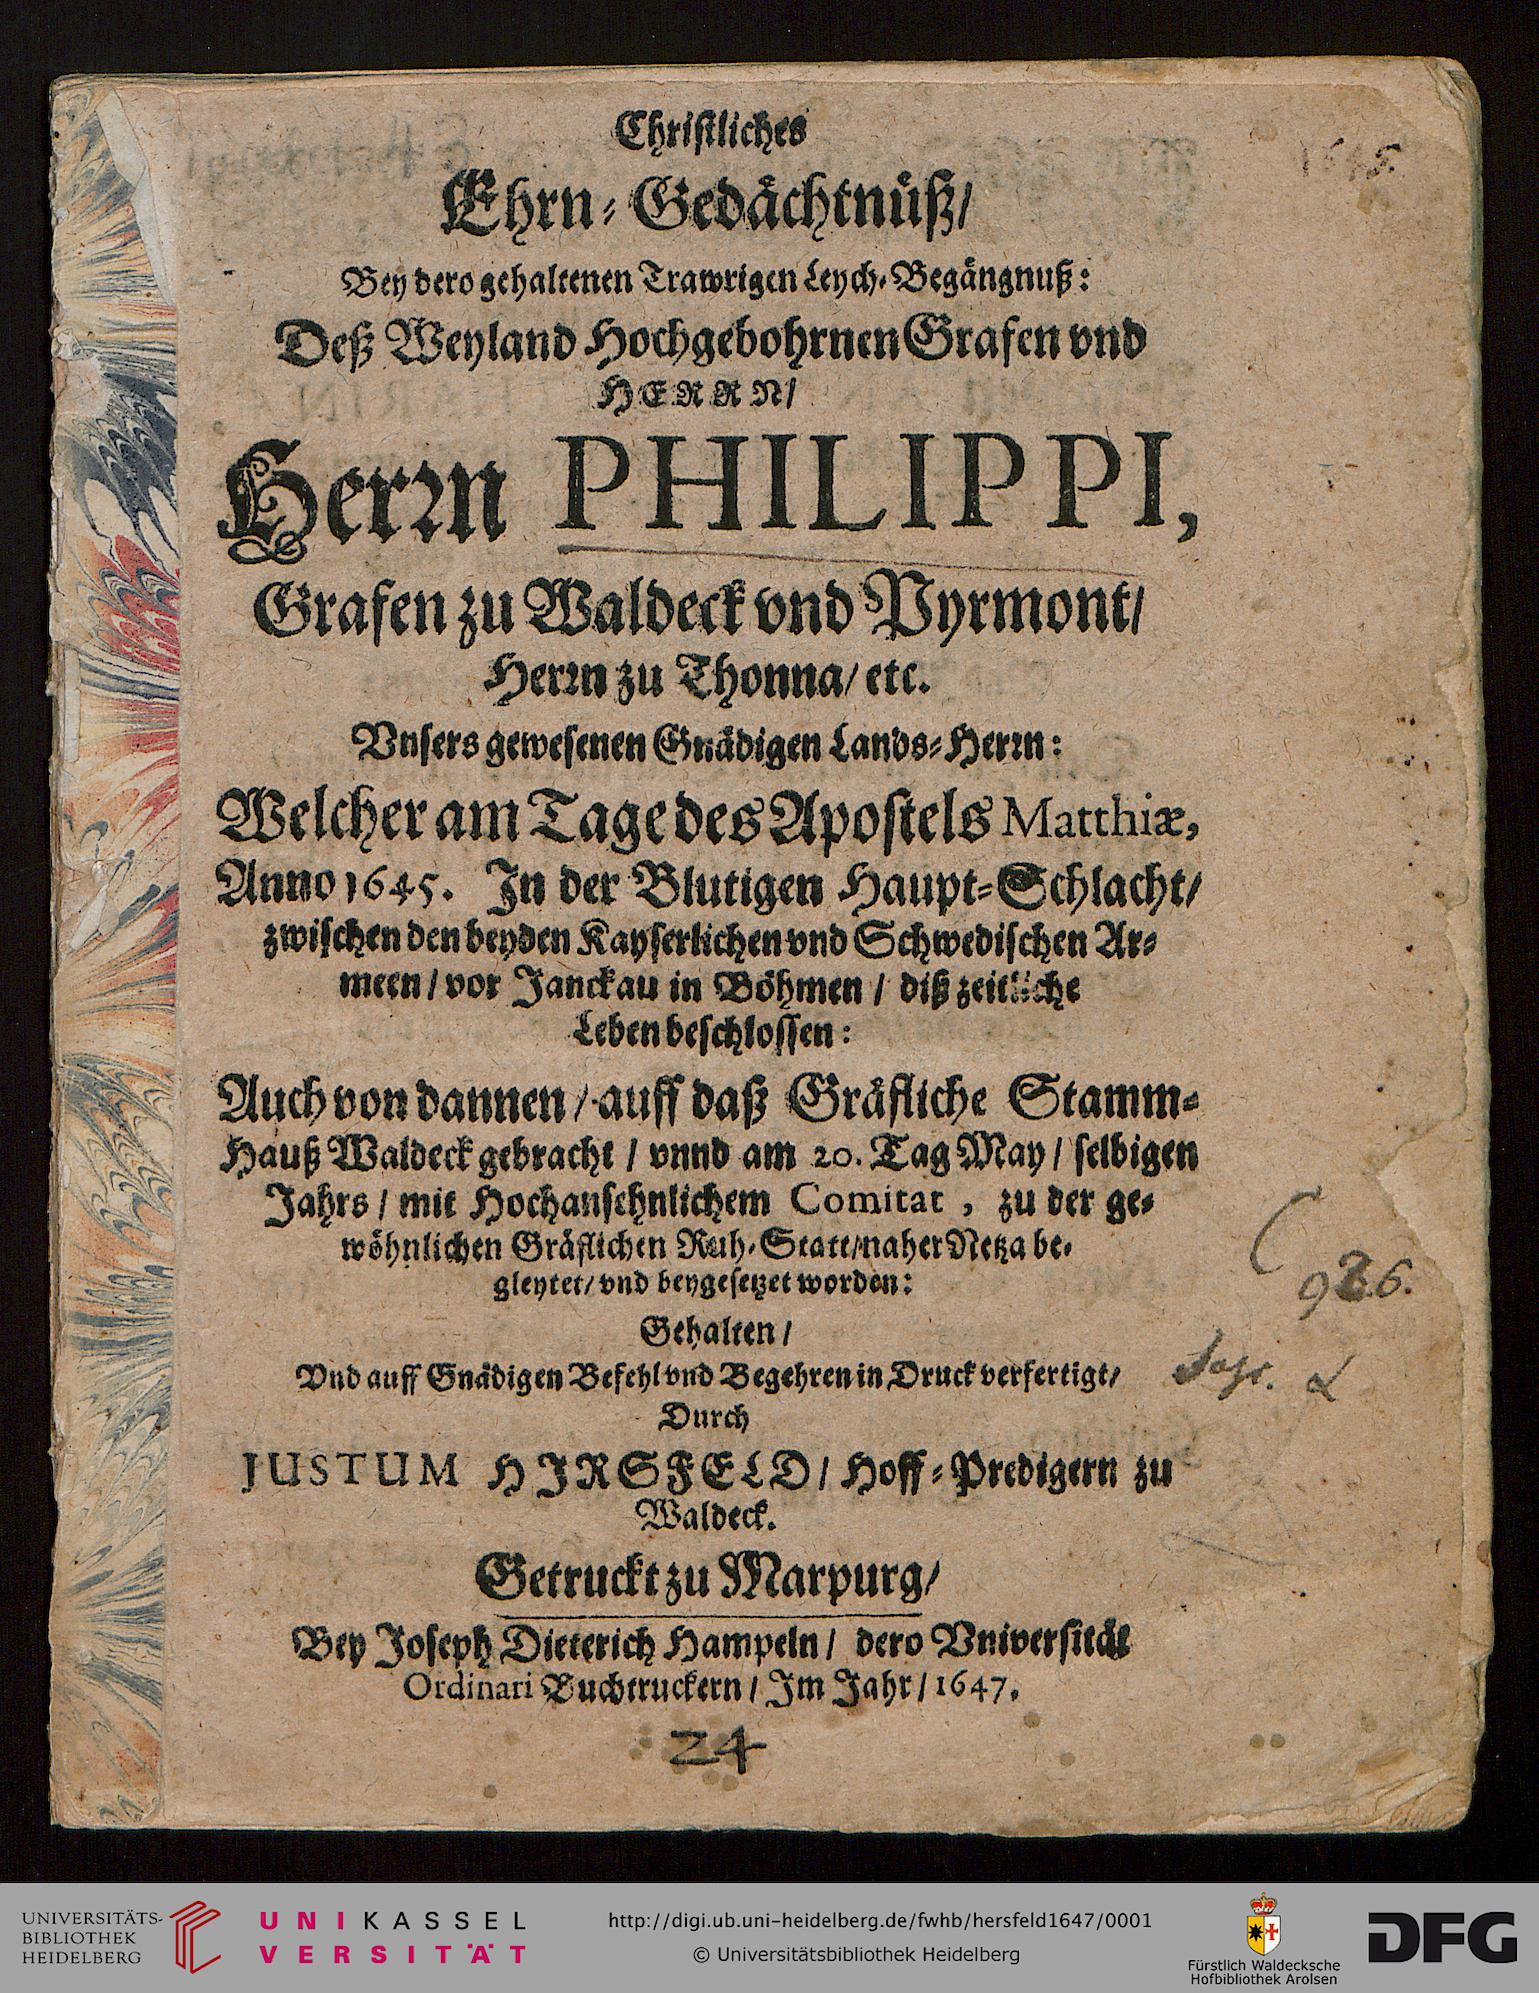 Christliches
Ehrn-Gedächtnüß/
Bey dero gehaltenen Trawrigen Leych-Begängnuß:
Deß Weyland Hochgebohrnen Grafen vnd
HERRN/
Herrn PHILIPPI,
Grafen zu Waldeck vnd Pyrmont/
Herrn zu Thonna/ etc.
Vnsers gewesenen Gnädigen Lands-Herrn:
Welcher am Tage des Apostels Matthiæ,
Anno 1645. In der Blutigen Haupt-Schlacht/
zwischen den beyden Kayserlichen vnd Schwedischen Ar-
meen / vor Janckau in Böhmen / diß zeitliche
Leben beschlossen:
Auch von dannen / auff daß Gräfliche Stamm-
Hauß Waldeck gebracht / vnnd am 20. Tag May / selbigen
Jahrs / mit Hochansehnlichem Comitat , zu der ge-
wöhnlichen Gräflichen Ruh-Statt/naher Netza be-
gleytet/ vnd beygesetzet worden:
926.
Gehalten /
Vnd auff Gnädigen Befehl vnd Begehren in Druck verfertigt/
Durch
JUSTUM HIRSFELD / Hoff-Predigern zu
Waldeck.
Getruckt zu Marpurg/
Bey Joseph Dieterich Hampeln / dero Vniversität
Ordinari Buchtruckern / Im Jahr / 1647.
24
UNIVERSITÄTS-
BIBLIOTHEK
HEIDELBERG
UNIKASSEL
VERSITÄT
http://digi.ub.uni-heidelberg.de/fwhb/hersfeld1647/0001
© Universitätsbibliothek Heidelberg
Fürstlich Waldecksche
Hofbibliothek Arolsen
DFG